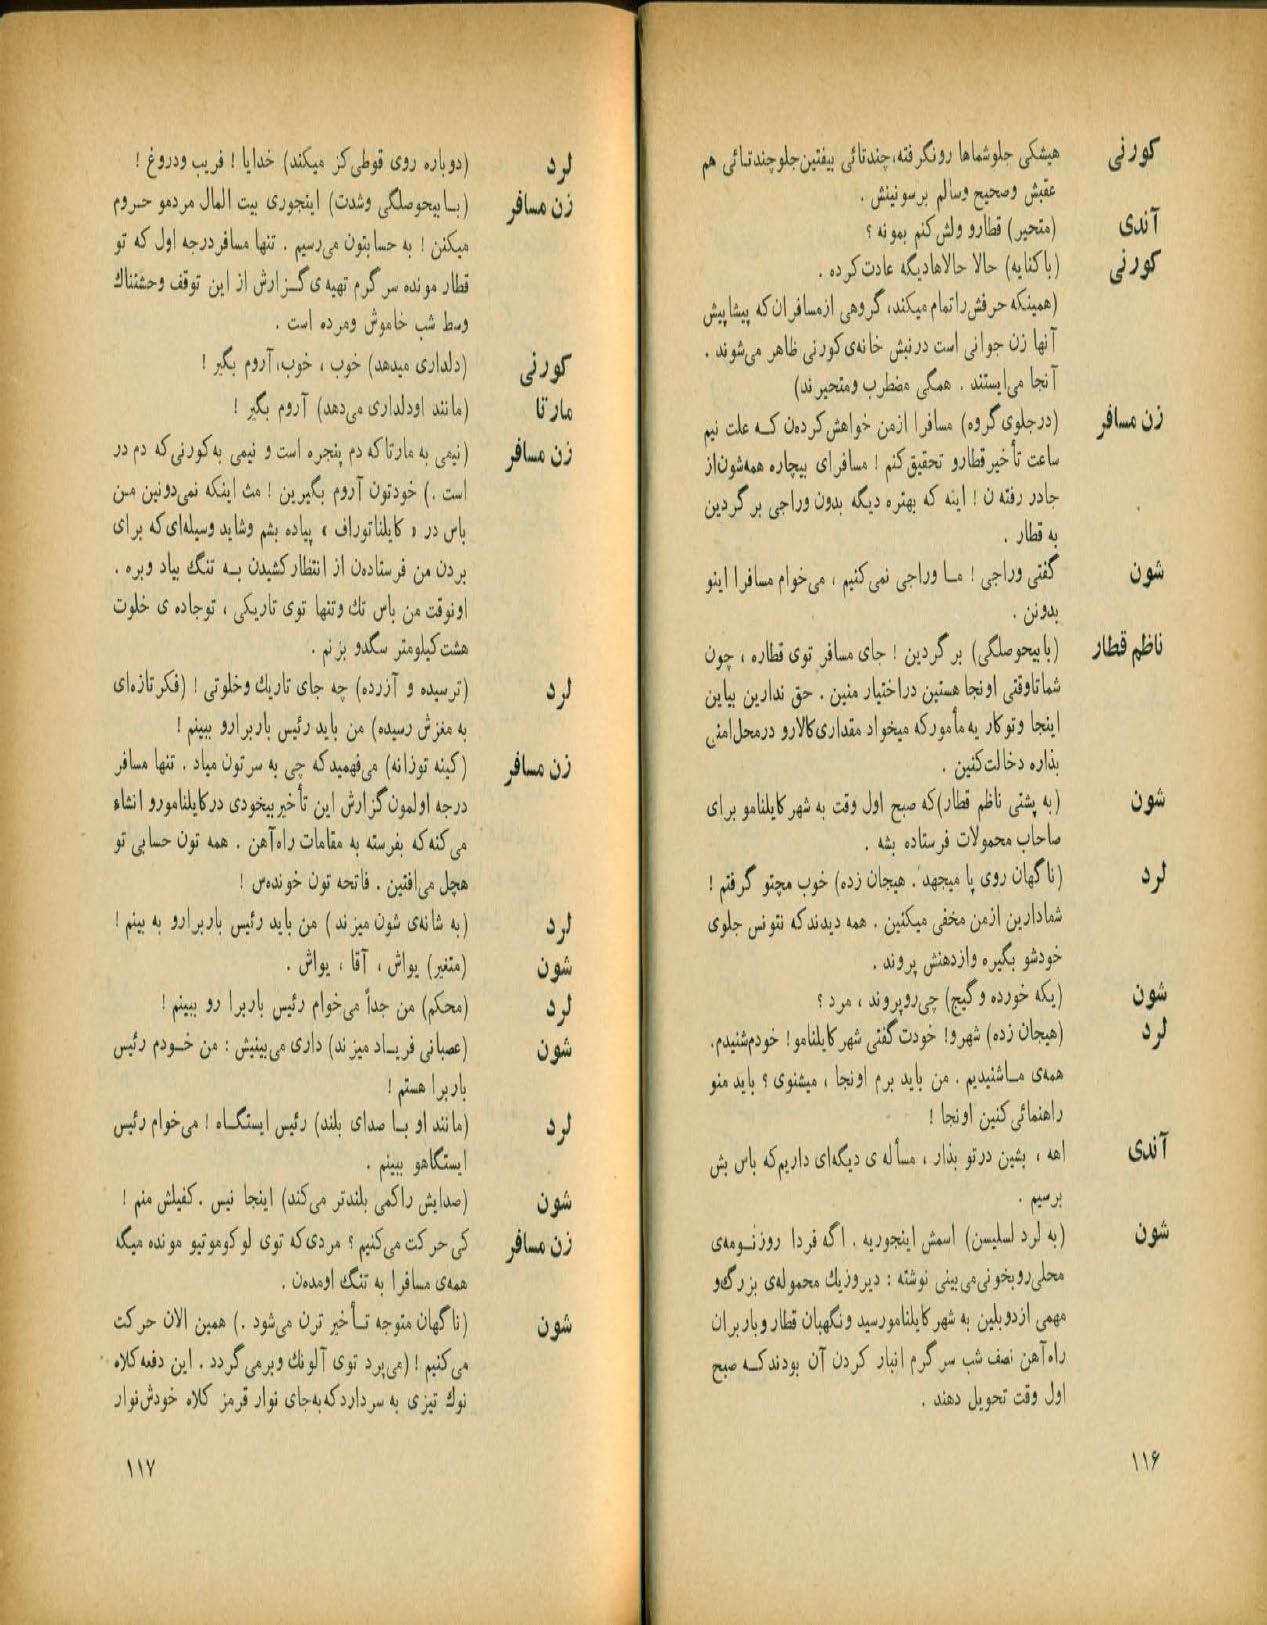 کورنی هیشکی جلوشماها رونگرفته، چندتائی بیفتین‌جلو چندتائی هم
عقبش وصحیح وسالم برسونینش .
آندی (متحیر) قطارو ولش کنم بمونه ؟
کورنی (باکنایه) حالا حالاهادیگه عادت‌کرده .
(همینکه حرفش‌راتمام میکند، گروهی ازمسافران‌که پیشاپیش
آنها زن جوانی است درنبش خانه‌ی کورنی ظاهر می‌شوند .
آنجا می‌ایستند . همگی مضطرب ومتحیرند)
زن مسافر (درجلوی گروه) مسافرا ازمن خواهش‌کرده‌ن کـه علت نیم
ساعت تأخیرقطارو تحقیق‌کنم ! مسافرای بیچاره همه‌شون‌از
جادر رفته‌ن ! اینه که بهتره دیگه بدون وراجی برگردین
به قطار .
شون گفتی وراجی ! مـا وراجی نمی‌کنیم ، می‌خوام مسافرا اینو
بدونن .
ناظم قطار (بابیحوصلگی) برگردین ! جای مسافر توی قطاره ، چون
شماتاوقتی اونجا هستین دراختیار منین . حق ندارین بیاین
اینجا وتوکار یه مأمورکه میخواد مقداری‌کالارو درمحل‌امنی
بذاره دخالت‌کنین .
شون (به پشتی ناظم قطار)که صبح اول وقت به شهر کایلنامو برای
صاحاب محمولات فرستاده بشه .
لرد (ناگهان روی پا میجهد . هیجان زده) خوب مچتو گرفتم !
شمادارین ازمن مخفی میکنین . همه دیدندکه نتونس جلوی
خودشو بگیره وازدهنش پروند .
شون (یکه خورده و گیج) چی‌روپروند ، مرد ؟
لرد (هیجان زده) شهرو! خودت گفتی شهر کایلنامو! خودم‌شنیدم.
همه‌ی مـاشنیدیم . من باید برم اونجا ، میشنوی ؟ باید منو
راهنمائی کنین اونجا !
آندی اهه ، بشین درتو بذار ، مسأله‌ی دیگه‌ای داریم‌که باس بش
برسیم .
شون (به لرد لسلیسن) اسمش اینجوریه . اگه فردا روزنـومه‌ی
محلی‌روبخونی‌می‌بینی نوشته : دیروزیك محموله‌ی بزرگ‌و
مهمی ازدوبلین به شهر کایلنامورسید ونگهبان قطار وباربران
راه‌آهن نصف شب سرگرم انبار کردن آن بودندکـه صبح
اول وقت تحویل دهند .
۱۱۶
لرد (دوباره روی قوطی کز میکند) خدایا ! فریب ودروغ !
زن مسافر (بـابیحوصلگی وشدت) اینجوری بیت المال مردمو حـروم
میکنن ! به حسابتون می‌رسیم . تنها مسافردرجه اول که تو
قطار مونده سرگرم تهیه‌ی گـزارش از این توقف وحشتناك
وسط شب خاموش ومرده است .
کورنی (دلداری میدهد) خوب ، خوب، آروم بگیر !
مارتا (مانند اودلداری می‌دهد) آروم بگیر !
زن مسافر (نیمی به مارتاکه دم پنجره است و نیمی به‌کورنی‌که دم در
است .) خودتون آروم بگیرین ! مث اینکه نمی‌دونین مـن
باس در « کایلناتوراف » پیاده بشم وشاید وسیله‌ای‌که برای
بردن من فرستاده‌ن از انتظارکشیدن بـه تنگ بیاد وبره .
اونوقت من باس تك وتنها توی تاریکی ، توجاده‌ی خلوت
هشت‌کیلومتر سگدو بزنم .
لرد (ترسیده و آزرده) چه جای تاریك وخلوتی ! (فکر تازه‌ای
به مغزش رسیده) من باید رئیس باربرارو ببینم !
زن مسافر (کینه توزانه) می‌فهمیدکه چی به سرتون میاد . تنها مسافر
درجه اولمون گزارش این تأخیر بیخودی درکایلنامورو انشاء
می‌کنه‌که بفرسته به مقامات راه‌آهن . همه تون حسابی تو
هچل می‌افتین . فاتحه تون خونده‌س !
لرد (به شانه‌ی شون میزند ) من باید رئیس باربرارو به بینم !
شون (متغیر) یواش ، آقا ، یواش .
لرد (محکم) من جداً می‌خوام رئیس باربرا رو ببینم !
شون (عصبانی فریـاد میزند) داری می‌بینیش : من خـودم رئیس
باربرا هستم !
لرد (مانند او بـا صدای بلند) رئیس ایستگـاه ! می‌خوام رئیس
ایستگاهو ببینم .
شون (صدایش راکمی بلندتر می‌کند) اینجا نیس . کفیلش منم !
زن مسافر کی حرکت می‌کنیم ؟ مردی‌که توی لوکوموتیو مونده میگه
همه‌ی مسافرا به تنگ اومده‌ن .
شون (ناگهان متوجه تـأخیر ترن می‌شود .) همین الان حرکت
می‌کنیم ! (می‌پرد توی آلونك وبرمی‌گردد . این دفعه‌کلاه
نوك تیزی به سرداردکه‌به‌جای نوار قرمز کلاه خودش‌نوار
۱۱۷